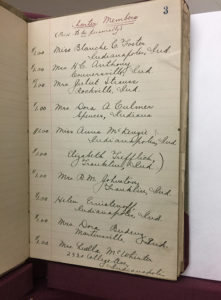 3
Charter Members
$1.00 Miss Blanche C. Foster
Indianapolis, Ind.
$1.00 Mrs. H. C. Anthony
Connersville, Ind.
$1.00 Mrs. Juliet Strauss
Rockville, Ind.
$1.00 Mrs. Dora A.
Spencer, Indiana
$1.00 Miss Anna McKenzie
Indianapolis, Ind.
$1.00 Elizabeth
Franklin, Ind.
$1.00 Mrs. B. M. Johnston,
Franklin, Ind.
$1.00 Helen
Indianapolis, Ind.
$1.00 Mrs. Dora
Martinsville, Ind.
$1.00 Mrs. Luella McWhirter
2330 College Ave.
Indianapolis